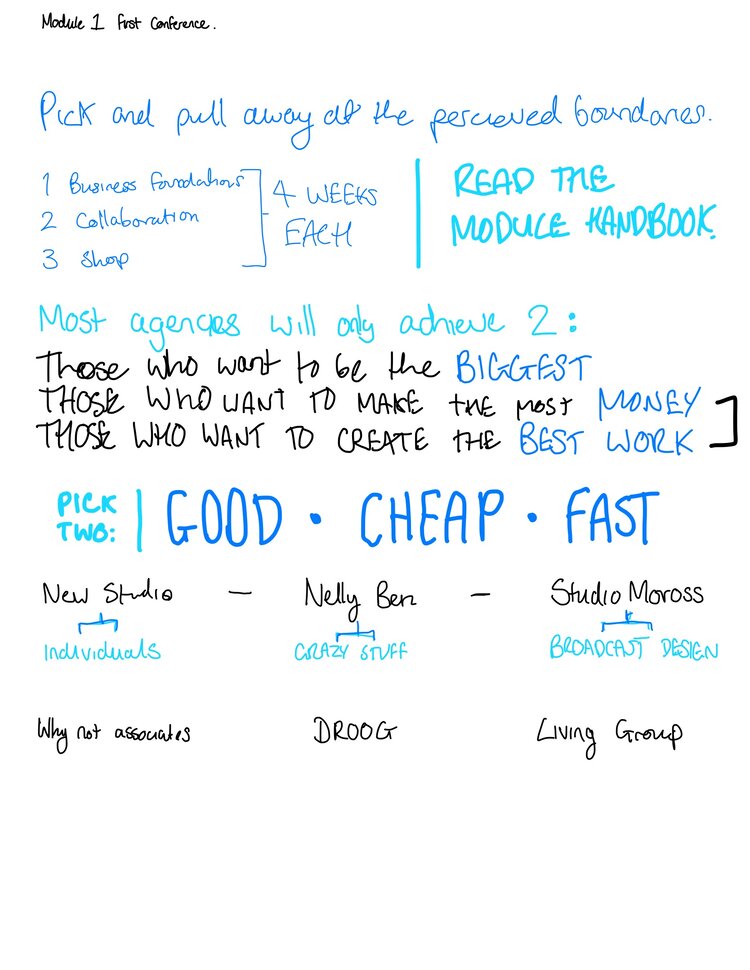 Module 1 First Conference.
Pick and pull away at the percieved boundaries.
1 Business Foundations
2 Collaboration
3 Shop
4 WEEKS
EACH
READ THE
MODULE HANDBOOK.
Most agencies will only achieve 2:
Those who want to be the BIGGEST
THOSE WHO WANT TO MAKE THE MOST MONEY
THOSE WHO WANT TO CREATE THE BEST WORK
PICK
TWO:
GOOD • CHEAP • FAST
New Studio – Nelly Ben – Studio Moross
Individuals CRAZY STUFF BROADCAST DESIGN
Why not associates DROOG Living Group